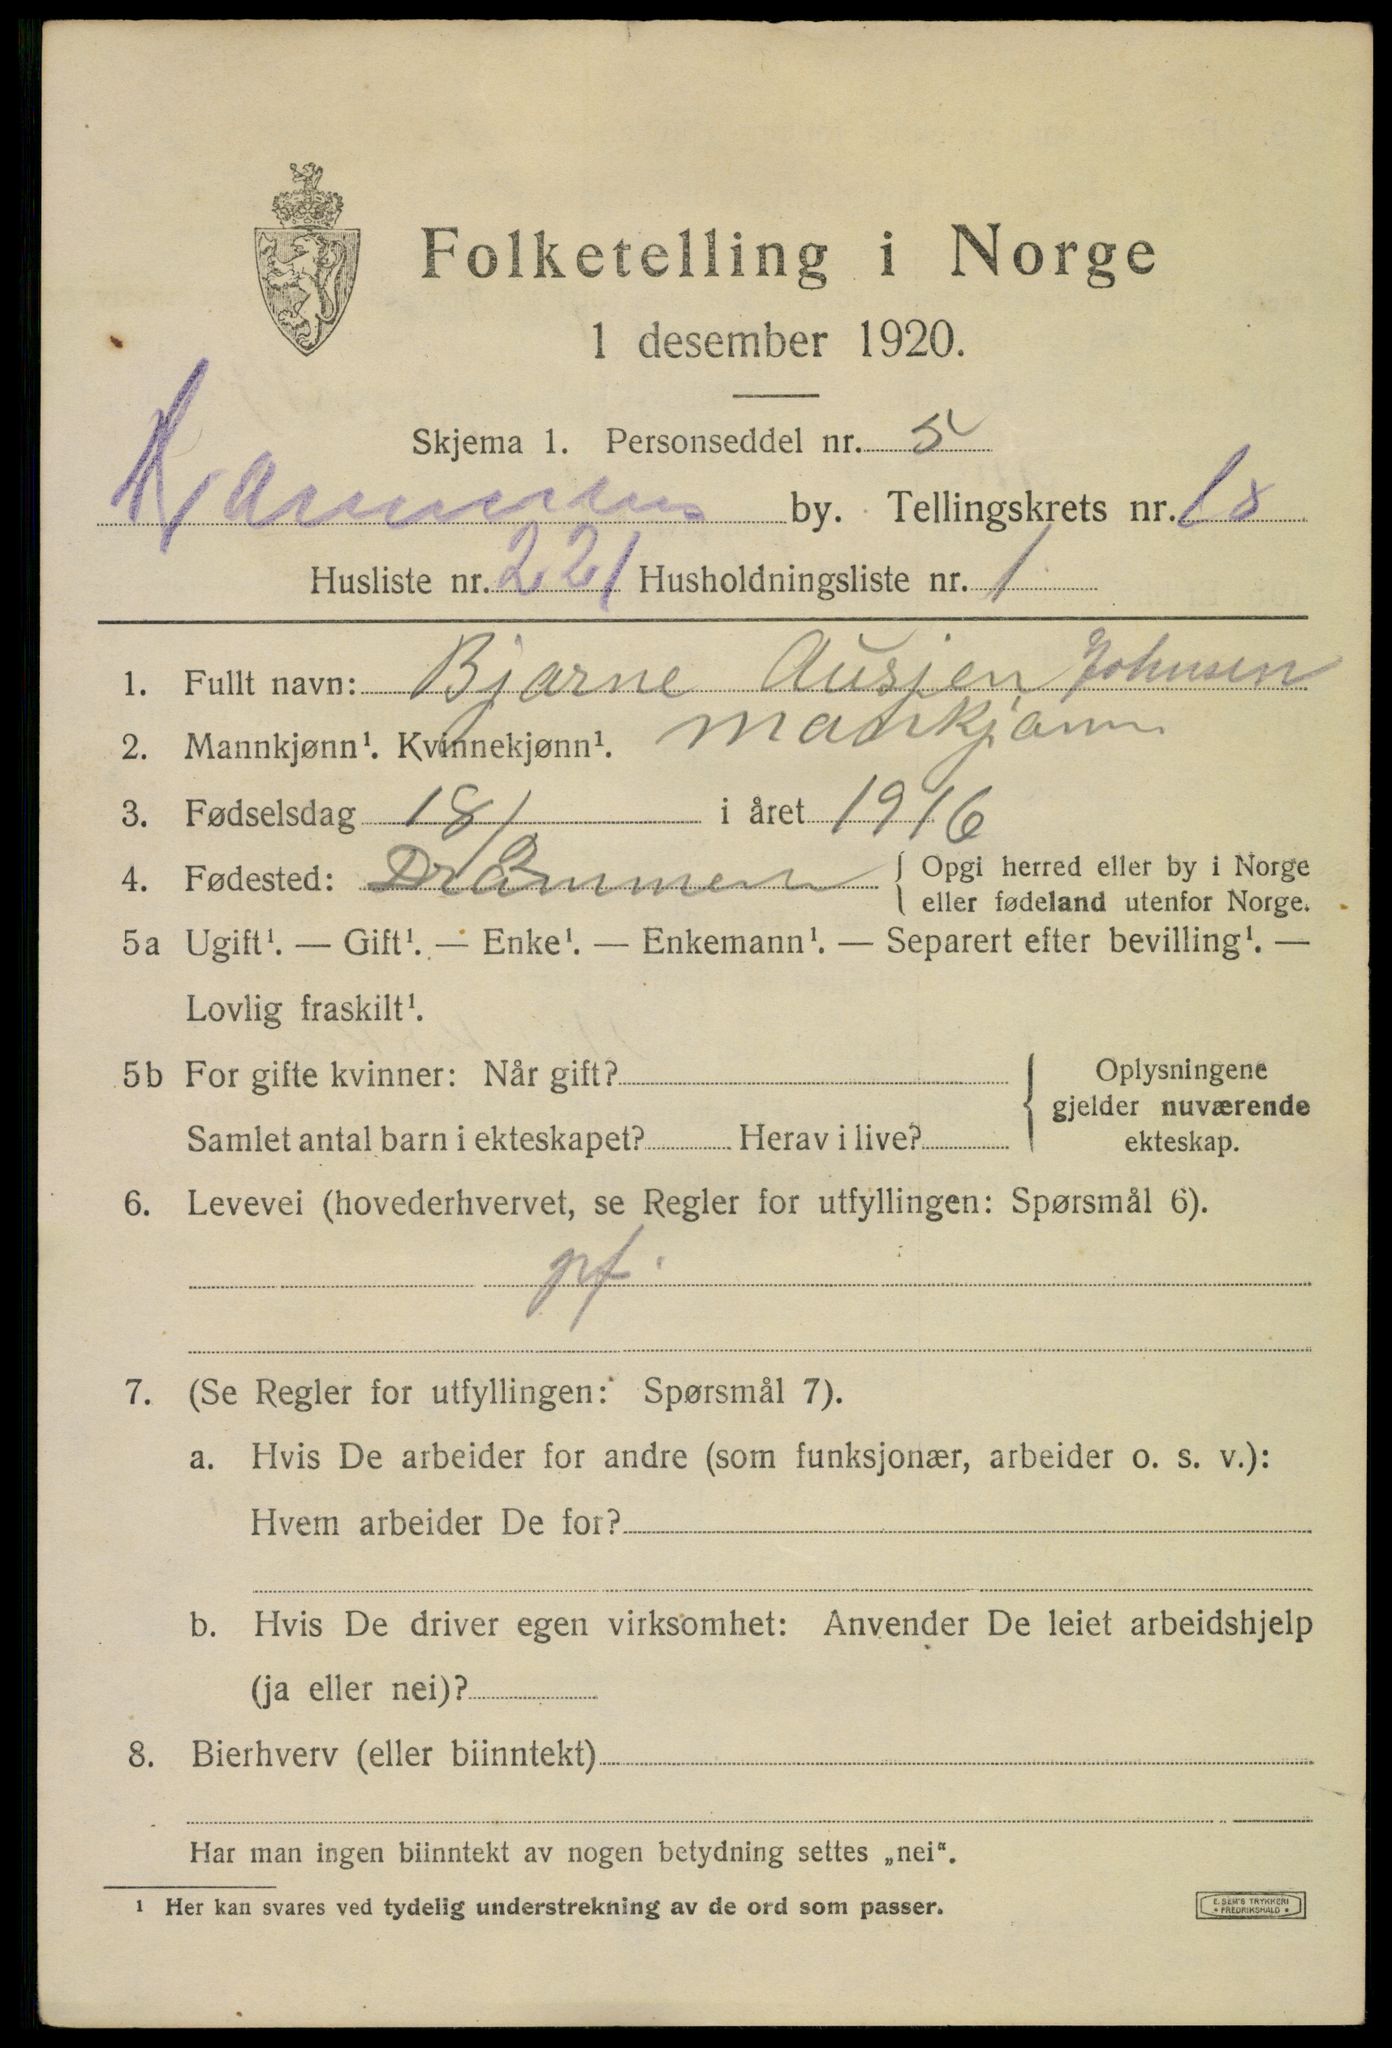 Folketelling i Norge
1 desember 1920.
Skjema 1. Personseddel nr. 5
Drammens by. Tellingskrets nr. 18
Husliste nr. 221 Husholdningsliste nr. 1
1. Fullt navn: Bjarne Ausjen Johnsen
2. Mannkjønn¹. Kvinnekjønn¹. Mankjønn
3. Fødselsdag 18/ i året 1916
4. Fødested: Drammen { Opgi herred eller by i Norge
eller fødeland utenfor Norge.
5a Ugift¹. — Gift¹. — Enke¹. — Enkemann¹. — Separert efter bevilling¹. —
Lovlig fraskilt¹.
5b For gifte kvinner: Når gift?
Samlet antal barn i ekteskapet? Herav i live?
{ Oplysningene
gjelder nuværende
ekteskap.
6. Levevei (hovederhvervet, se Regler for utfyllingen: Spørsmål 6).
pf.
7. (Se Regler for utfyllingen: Spørsmål 7).
a. Hvis De arbeider for andre (som funksjonær, arbeider o. s. v.):
Hvem arbeider De for?
b. Hvis De driver egen virksomhet: Anvender De leiet arbeidshjelp
(ja eller nei)?
8. Bierhverv (eller biinntekt)
Har man ingen biinntekt av nogen betydning settes „nei".
¹ Her kan svares ved tydelig understrekning av de ord som passer.
E. SEM'S TRYKKERI
• FREDRIKSHALD •